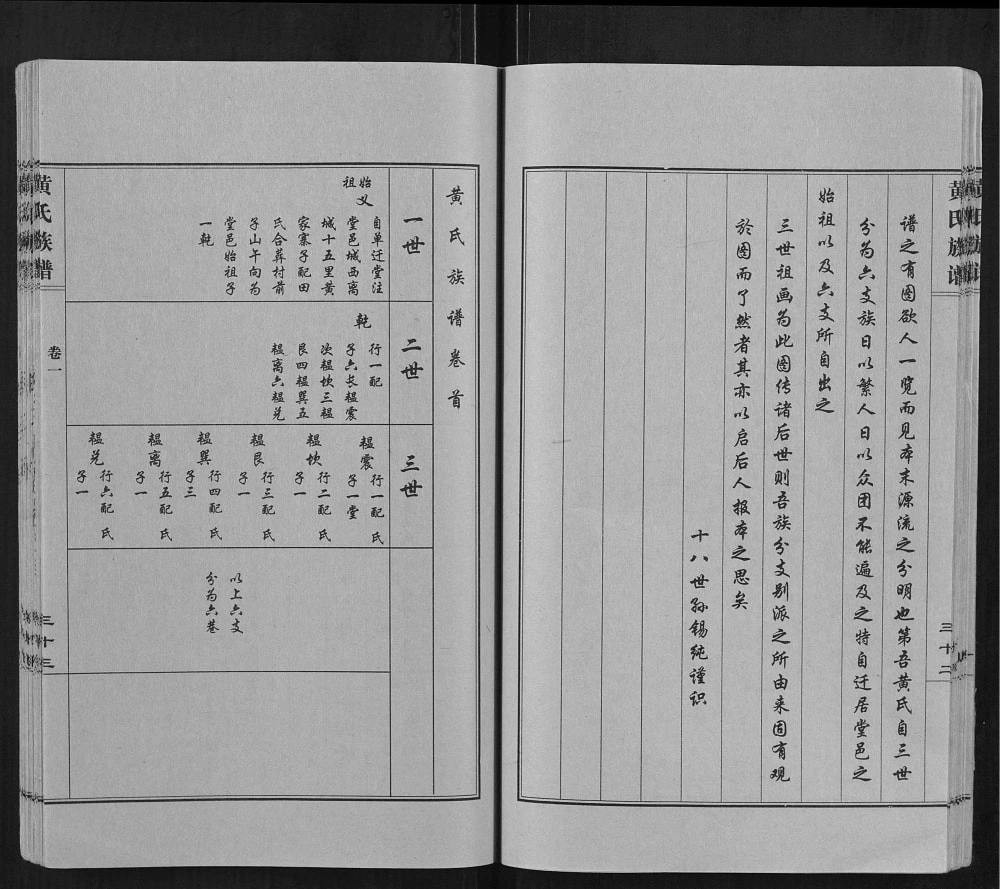 黄氏族谱
三十二
谱之有图欲人一览而见本末源流之分明也第吾黄氏自三世
分为六支族日以繁人日以众团不能遍及之特自迁居堂邑之
始祖以及六支所自出之
三世祖画为此图传诸后世则吾族分支别派之所由来固有观
於图而了然者其亦以启后人报本之思矣
十八世孙锡纯谨识
黄氏族谱卷首
一世
始祖
义
自单迁堂注
堂邑城西离
城十五里黄
家寨子配田
氏合葬村前
子山午向为
堂邑始祖子
一乾
二世
乾
行一配
子六长韫震
次韫坎三韫
艮四韫巽五
韫离六韫兑
三世
韫震
行一配 氏
子一堂
韫坎
行二配 氏
子一
韫艮
行三配 氏
子一
韫巽
行四配 氏
子三
韫离
行五配 氏
子一
韫兑
行六配 氏
子一
以上六支
分为六卷
黄氏族谱
卷一
三十三